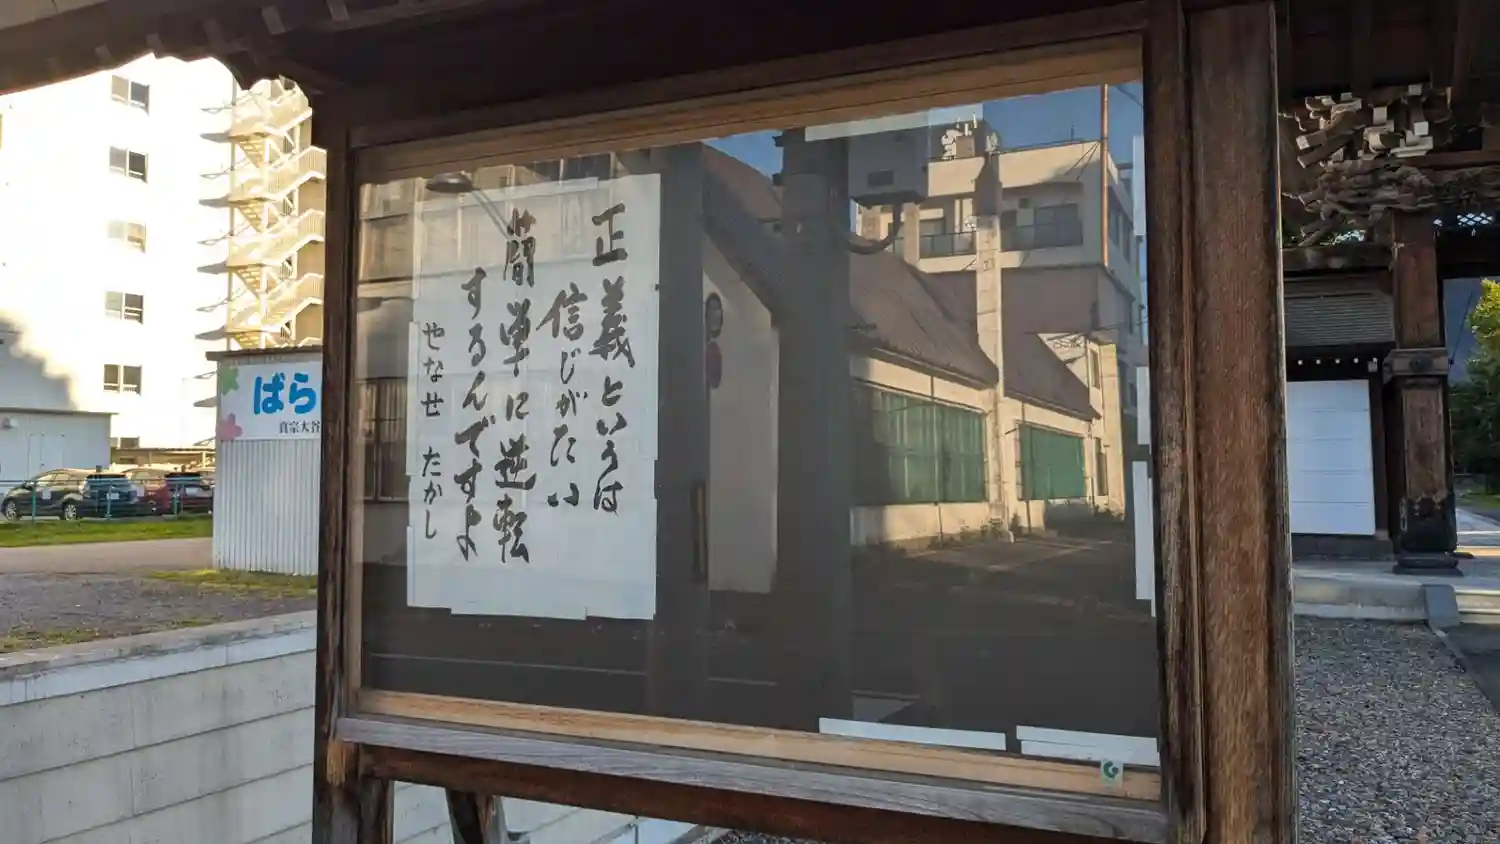 正義というのは
信じがたい
簡単に逆転
するんですよ
やなせ たかし
ばら
真宗大谷